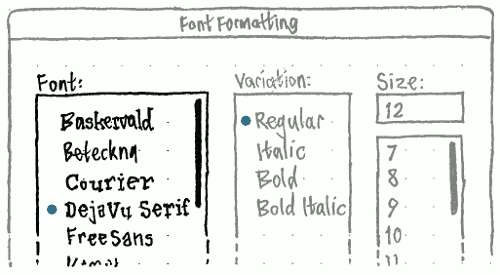 Font Formatting
Font:
Baskervald
Boteckna
Courier
DejaVu Serif
FreeSans
Variation:
Regular
Italic
Bold
Bold Italic
Size:
12
7
8
9
10
11